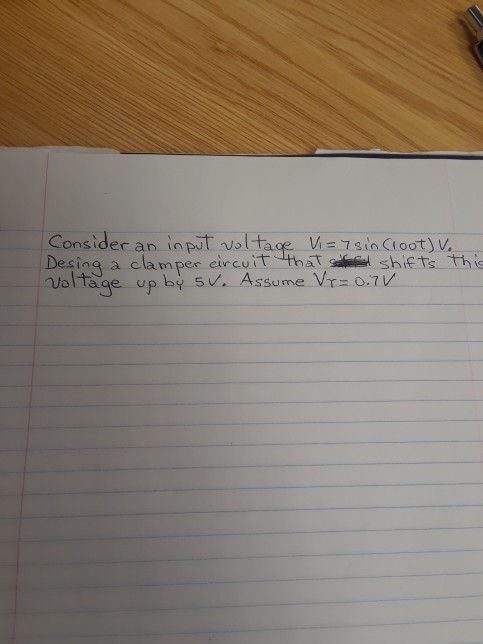 Consider an input voltage V1 = 7 sin(100t) V.
Desing a clamper circuit that shifts this
voltage up by 5V. Assume Vγ = 0.7V